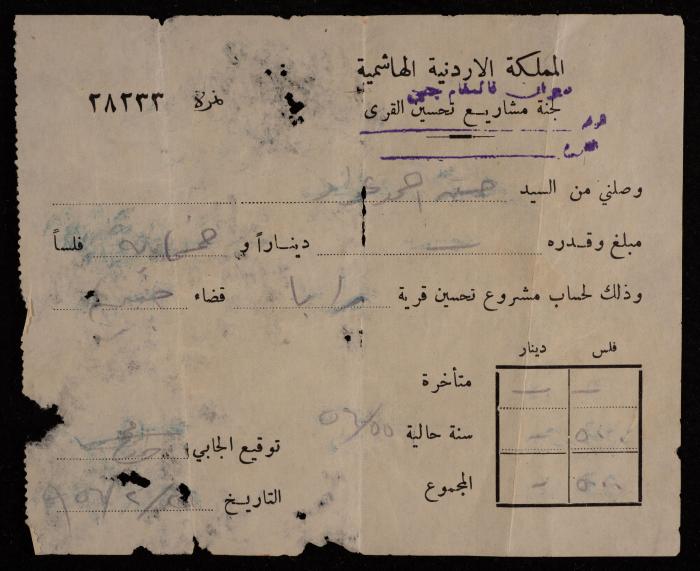 المملكة الاردنية الهاشمية
ديوان قائمقام جنين
لجنة مشاريع تحسين القرى
نمرة ٢٨٢٣٣
وصلني من السيد حسين احمد
مبلغ وقدره — ديناراً و خمسمائة فلساً
وذلك لحساب مشروع تحسين قرية رابا قضاء جنين
فلس دينار
متأخرة — —
سنة حالية ٥٦/٥٥ ٥٠٠ —
المجموع ٥٠٠ —
توقيع الجابي
التاريخ